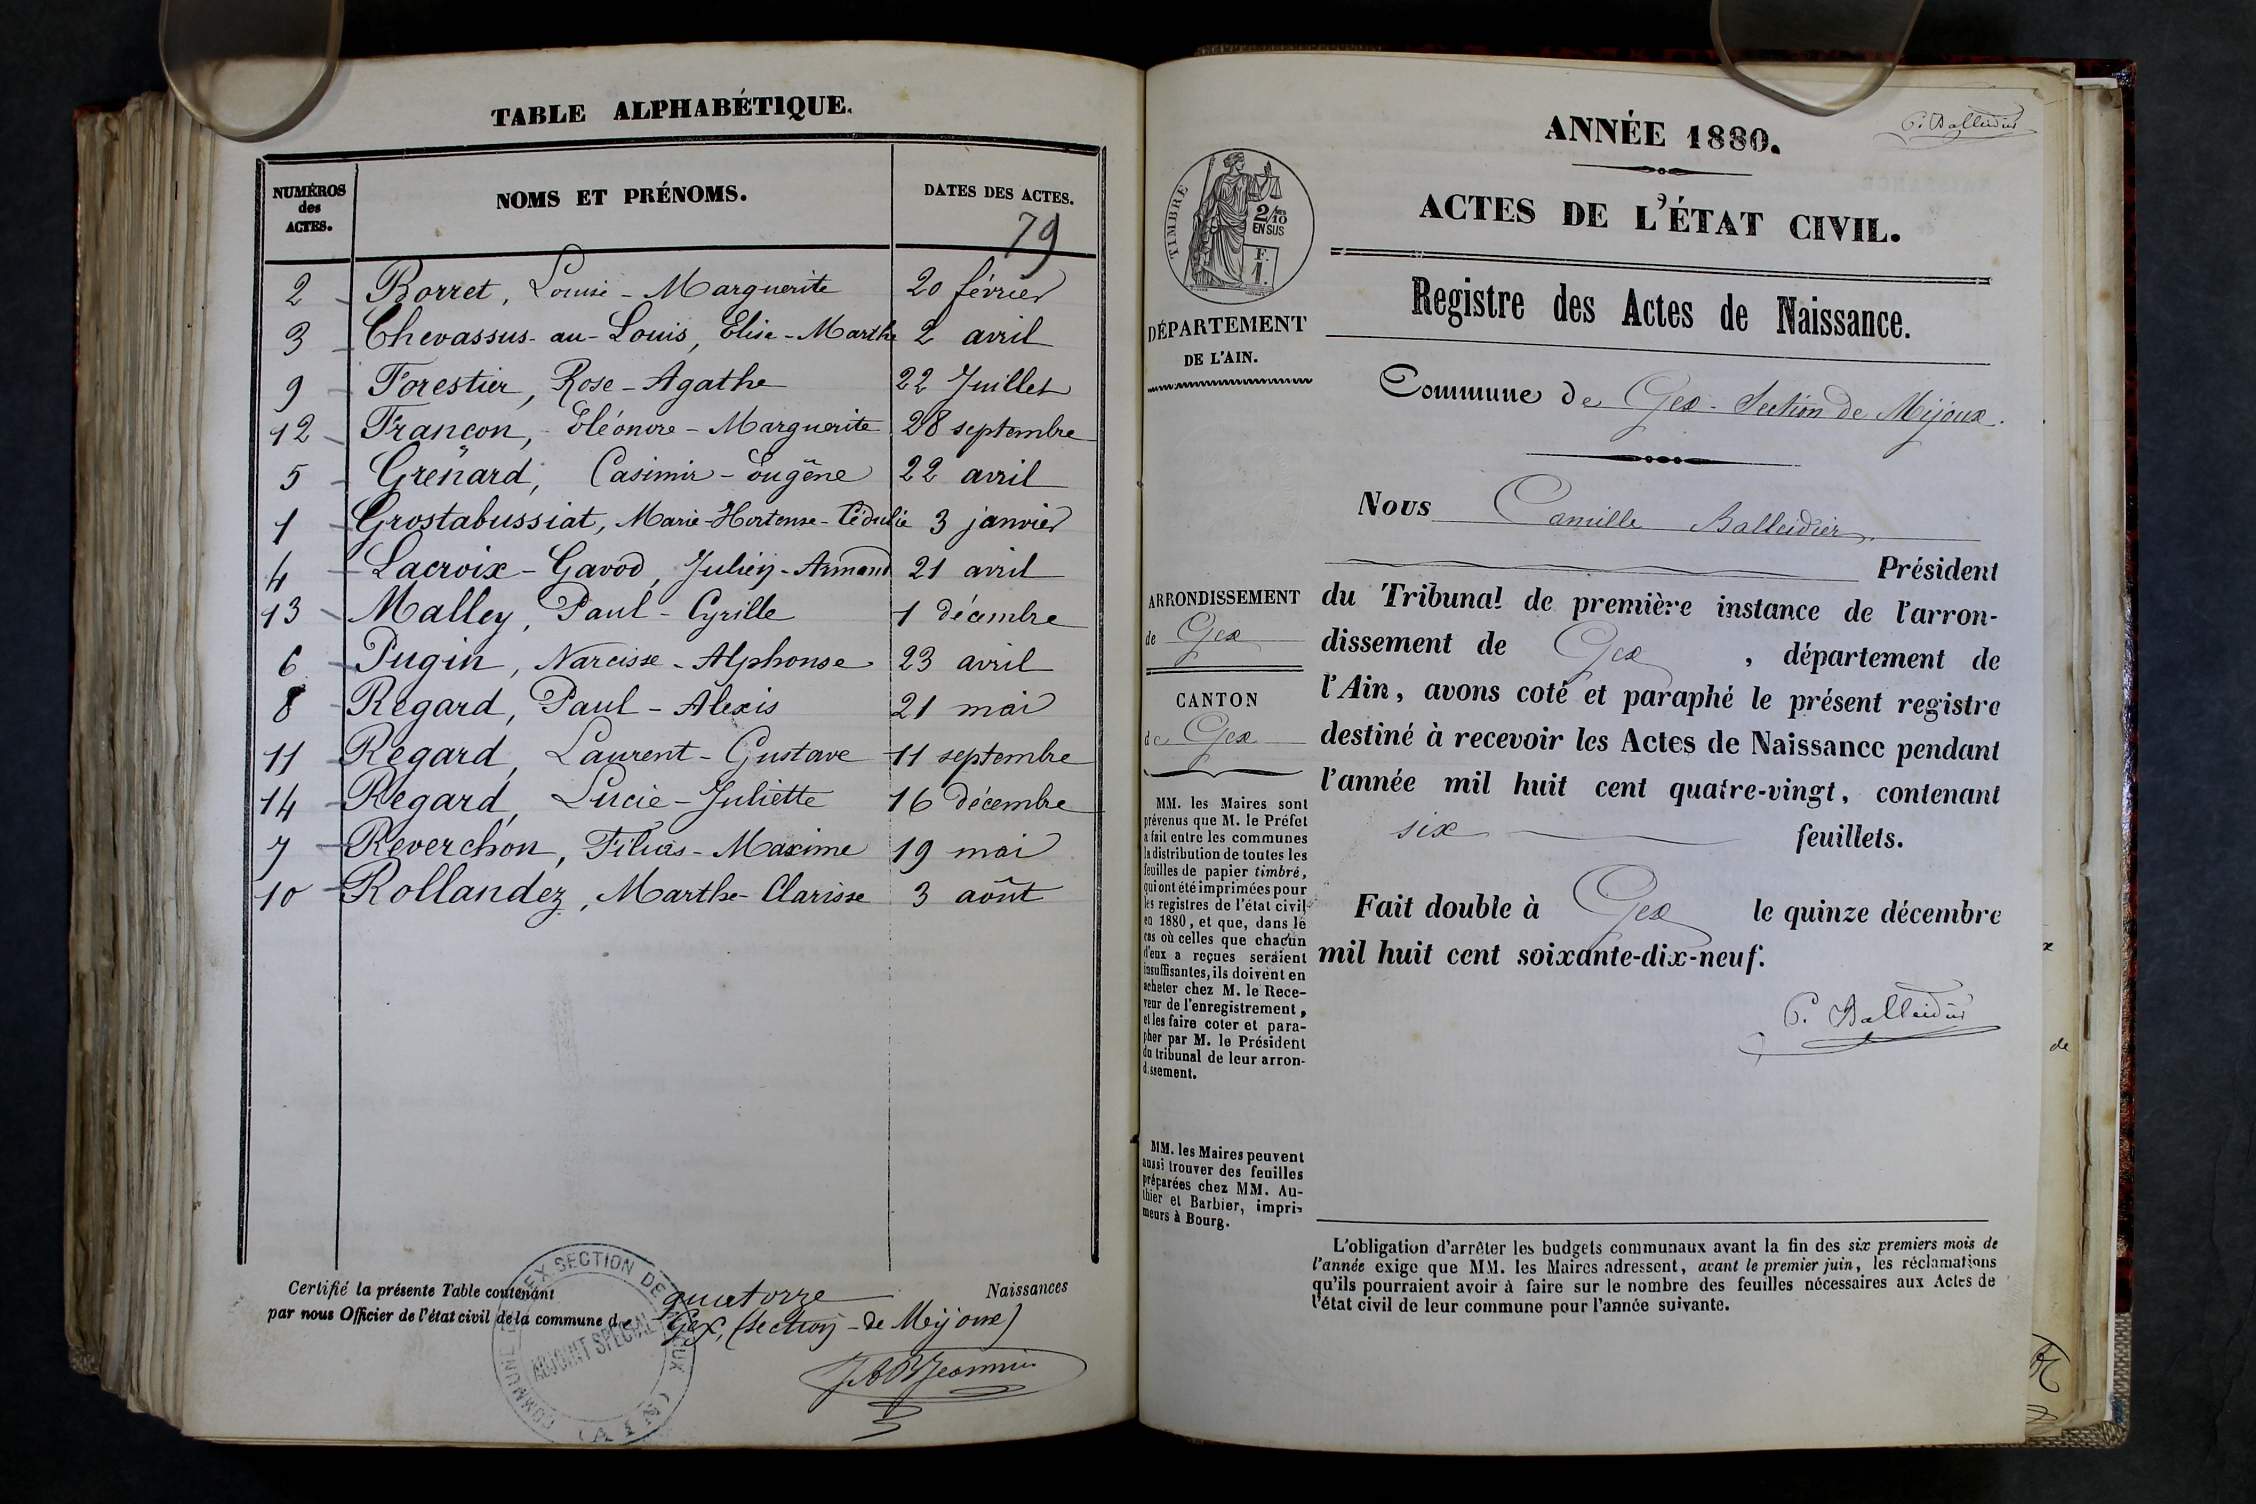 TABLE ALPHABÉTIQUE.
NUMÉROS des ACTES.
NOMS ET PRÉNOMS.
DATES DES ACTES.
79
2 Borret, Louise-Marguerite 20 février
3 Chevassus-au-Louis, Elise-Marthe 2 avril
9 Forestier, Rose-Agathe 22 Juillet
12 Françon, Eléonore-Marguerite 28 septembre
5 Grenard, Casimir-Eugène 22 avril
1 Grostabussiat, Marie-Hortense- 3 janvier
4 Lacroix-Gavod, Julien-Armand 21 avril
13 Malley, Paul-Cyrille 1 décembre
6 Pugin, Narcisse-Alphonse 23 avril
8 Regard, Paul-Alexis 21 mai
11 Regard, Laurent-Gustave 11 septembre
14 Regard, Lucie-Juliette 16 décembre
7 Reverchon, Maxime 19 mai
10 Rollandez, Marthe-Clarisse 3 août
Certifié la présente Table contenant quatorze Naissances
par nous Officier de l'état civil de la commune de Gex, (section de Mijoux)
COMMUNE DE GEX. SECTION DE MIJOUX (AIN)
ADJOINT SPÉCIAL
C. Balleidier
ANNÉE 1880.
ACTES DE L'ÉTAT CIVIL.
Registre des Actes de Naissance.
TIMBRE
2/10
EN SUS
F.
1.
DÉPARTEMENT
DE L'AIN.
Commune de Gex - Section de Mijoux.
Nous Camille Balleidier
Président
du Tribunal de première instance de l'arron-
dissement de Gex, département de
l'Ain, avons coté et paraphé le présent registre
destiné à recevoir les Actes de Naissance pendant
l'année mil huit cent quatre-vingt, contenant
six feuillets.
Fait double à Gex le quinze décembre
mil huit cent soixante-dix-neuf.
C. Balleidier
ARRONDISSEMENT
de Gex
CANTON
de Gex
MM. les Maires sont
prévenus que M. le Préfet
a fait entre les communes
la distribution de toutes les
feuilles de papier timbré,
qui ont été imprimées pour
les registres de l'état civil
en 1880, et que, dans le
cas où celles que chacun
d'eux a reçues seraient
insuffisantes, ils doivent en
acheter chez M. le Rece-
veur de l'enregistrement,
et les faire coter et para-
pher par M. le Président
du tribunal de leur arron-
dissement.
MM. les Maires peuvent
aussi trouver des feuilles
préparées chez MM. Au-
thier et Barbier, impri-
meurs à Bourg.
L'obligation d'arrêter les budgets communaux avant la fin des six premiers mois de
l'année exige que MM. les Maires adressent, avant le premier juin, les réclamations
qu'ils pourraient avoir à faire sur le nombre des feuilles nécessaires aux Actes de
l'état civil de leur commune pour l'année suivante.
de